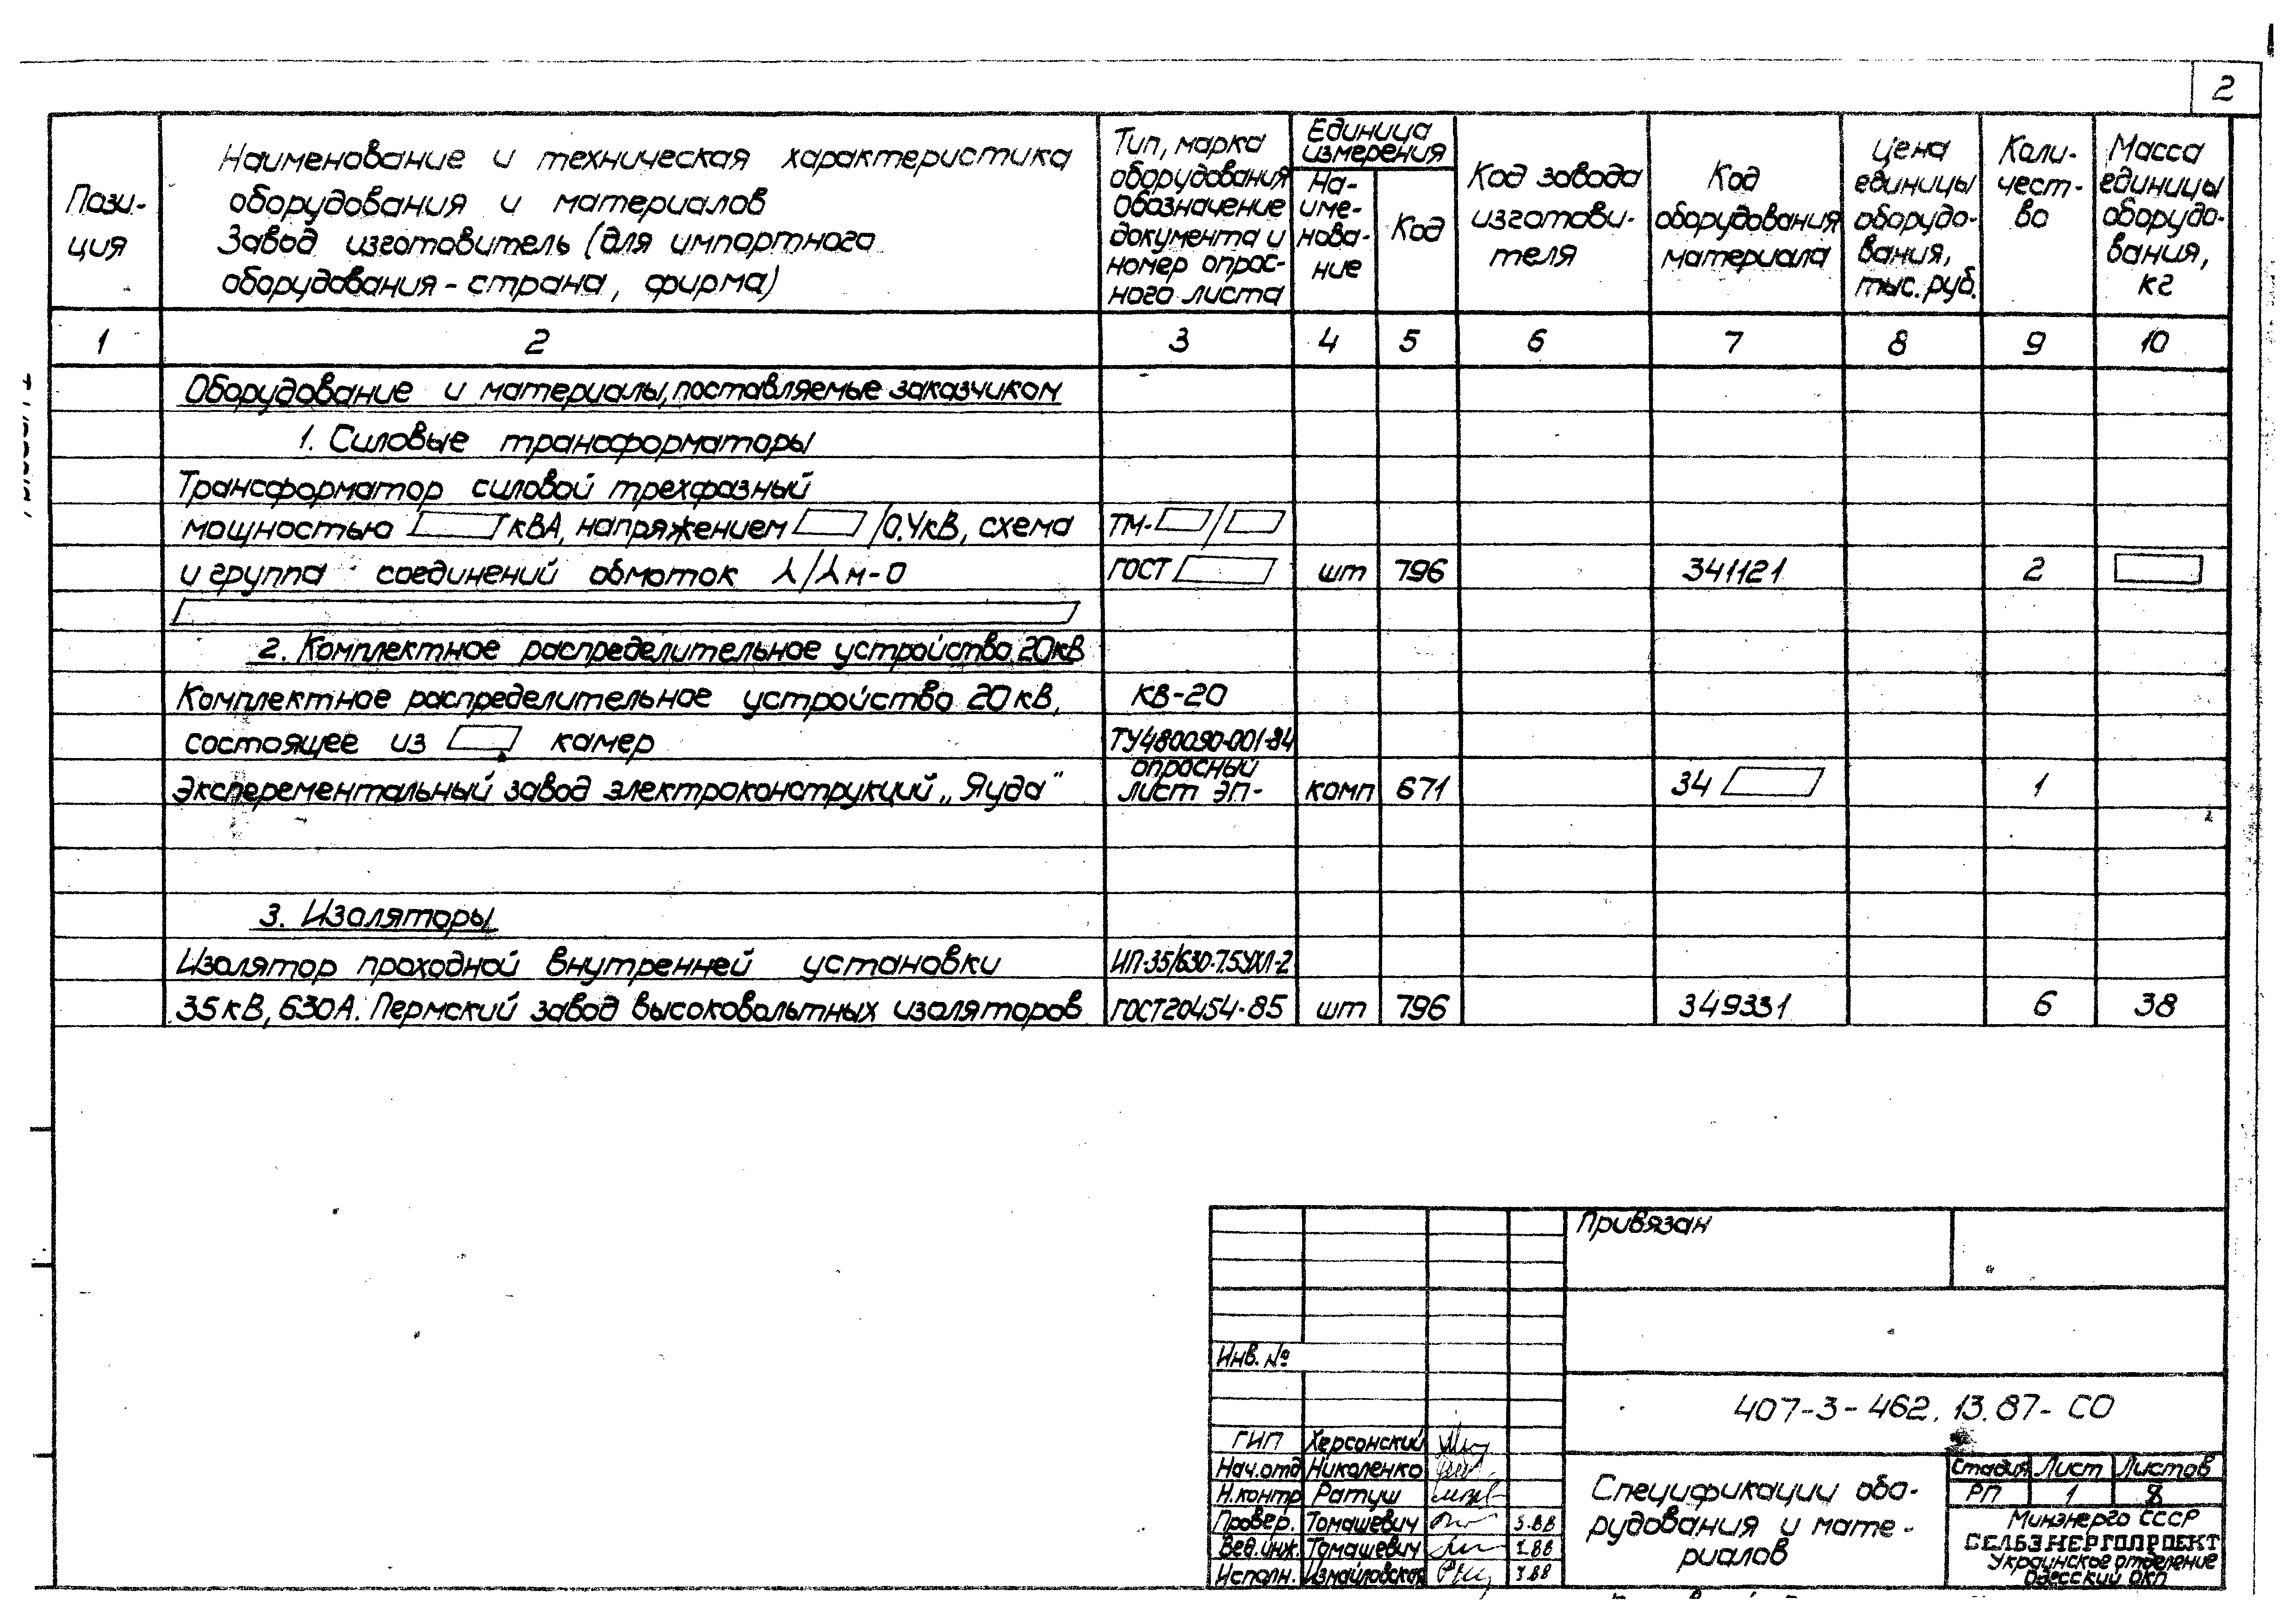 2
Пози-
ция
Наименование и техническая характеристика
оборудования и материалов
Завод изготовитель (для импортного
оборудования - страна, фирма)
Тип, марка
оборудования
Обозначение
документа и
номер опрос-
ного листа
Единица
измерения
На-
име-
нова-
ние
Код
Код завода
изготови-
теля
Код
оборудования
материала
Цена
единицы
оборудо-
вания,
тыс. руб.
Коли-
чест-
во
Масса
единицы
оборудо-
вания,
кг
1 2 3 4 5 6 7 8 9 10
Оборудование и материалы, поставляемые заказчиком
1. Силовые трансформаторы
Трансформатор силовой трехфазный
мощностью кВА, напряжением /0,4кВ, схема ТМ- /
и группа соединений обмоток Y/Yн-0 ГОСТ шт 796 341121 2
2. Комплектное распределительное устройство 20кВ
Комплектное распределительное устройство 20кВ, КВ-20
состоящее из камер ТУ480090-001-84
Эксперементальный завод электроконструкций „Яуда" опросный
лист ЭП- комп 671 34 1
3. Изоляторы
Изолятор проходной внутренней установки ИП-35/630-7.5УХЛ-2
35кВ, 630А. Пермский завод высоковольтных изоляторов ГОСТ20454-85 шт 796 349331 6 38
Привязан
Инв. №
407-3-462.13.87-СО
ГИП Херсонский
Нач.отд Николенко
Н.контр Ратуш
Провер. Томашевич 3.88
Вед.инж. Томашевич 3.88
Исполн. Измайловская 3.88
Спецификации обо-
рудования и мате-
риалов
Стадия Лист Листов
РП 1 8
Минэнерго СССР
СЕЛЬЭНЕРГОПРОЕКТ
Украинское отделение
Одесский ОКП